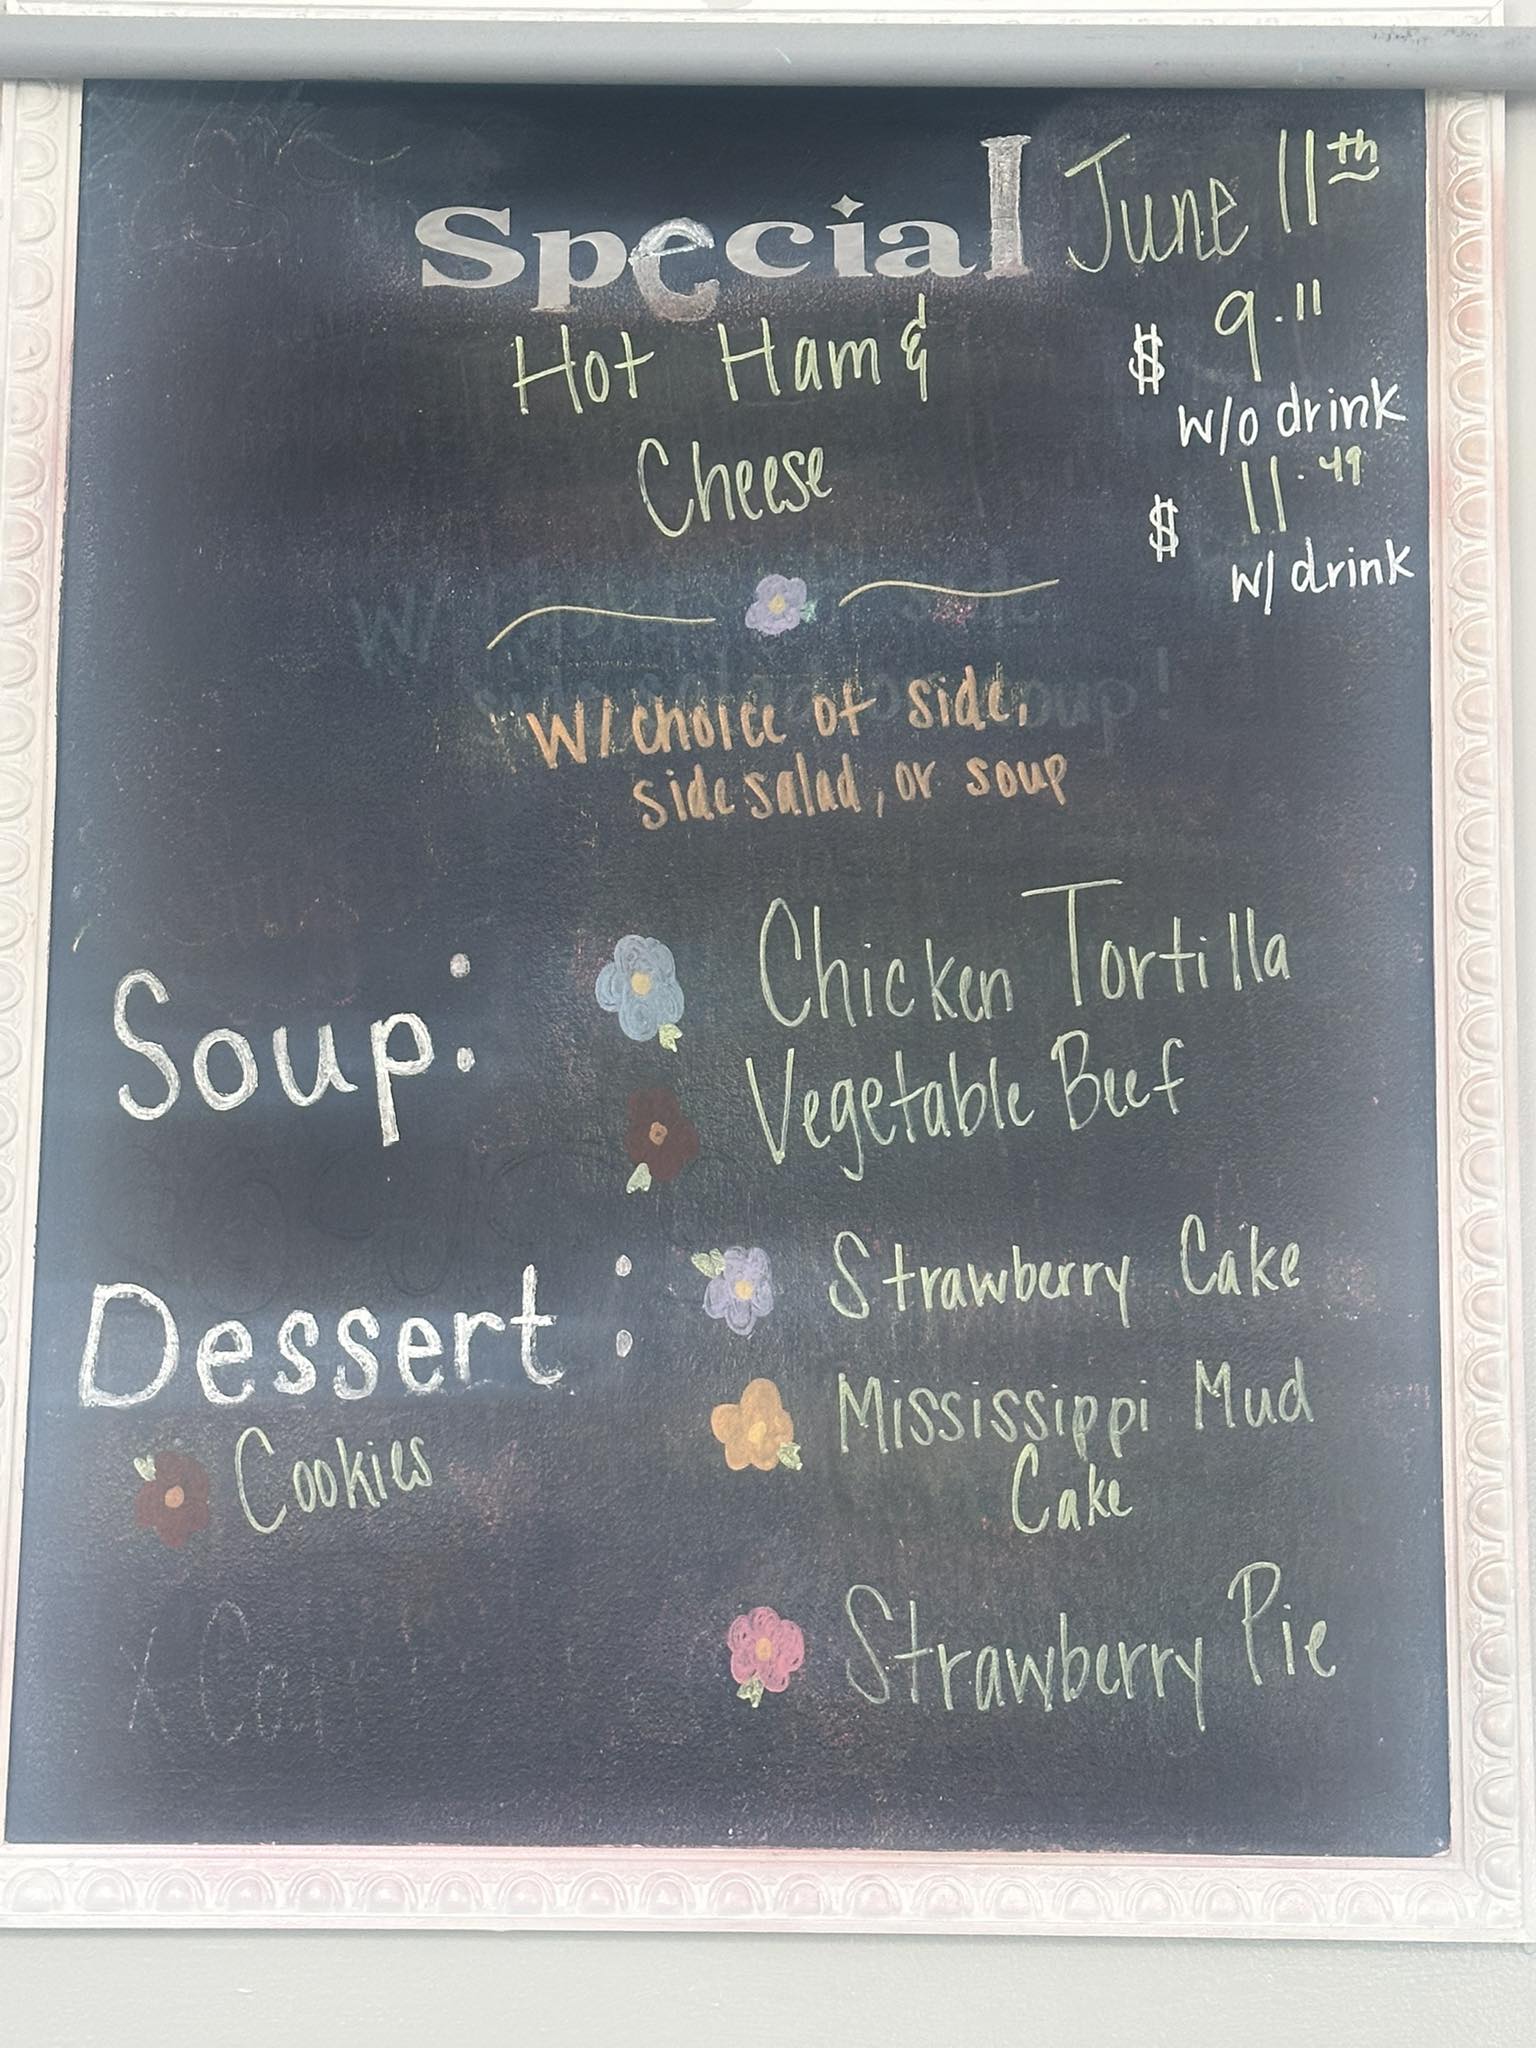 Special June 11th
Hot Ham &
Cheese
$ 9.11
w/o drink
$ 11.49
w/ drink
W/ choice of side,
side salad, or soup
Soup:
Chicken Tortilla
Vegetable Beef
Dessert:
Strawberry Cake
Mississippi Mud
Cake
Cookies
Strawberry Pie